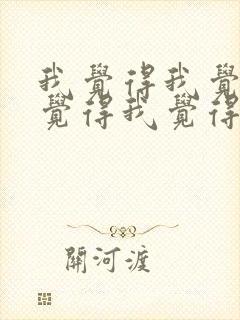 我覺得我覺
覺得我覺得
關河渡